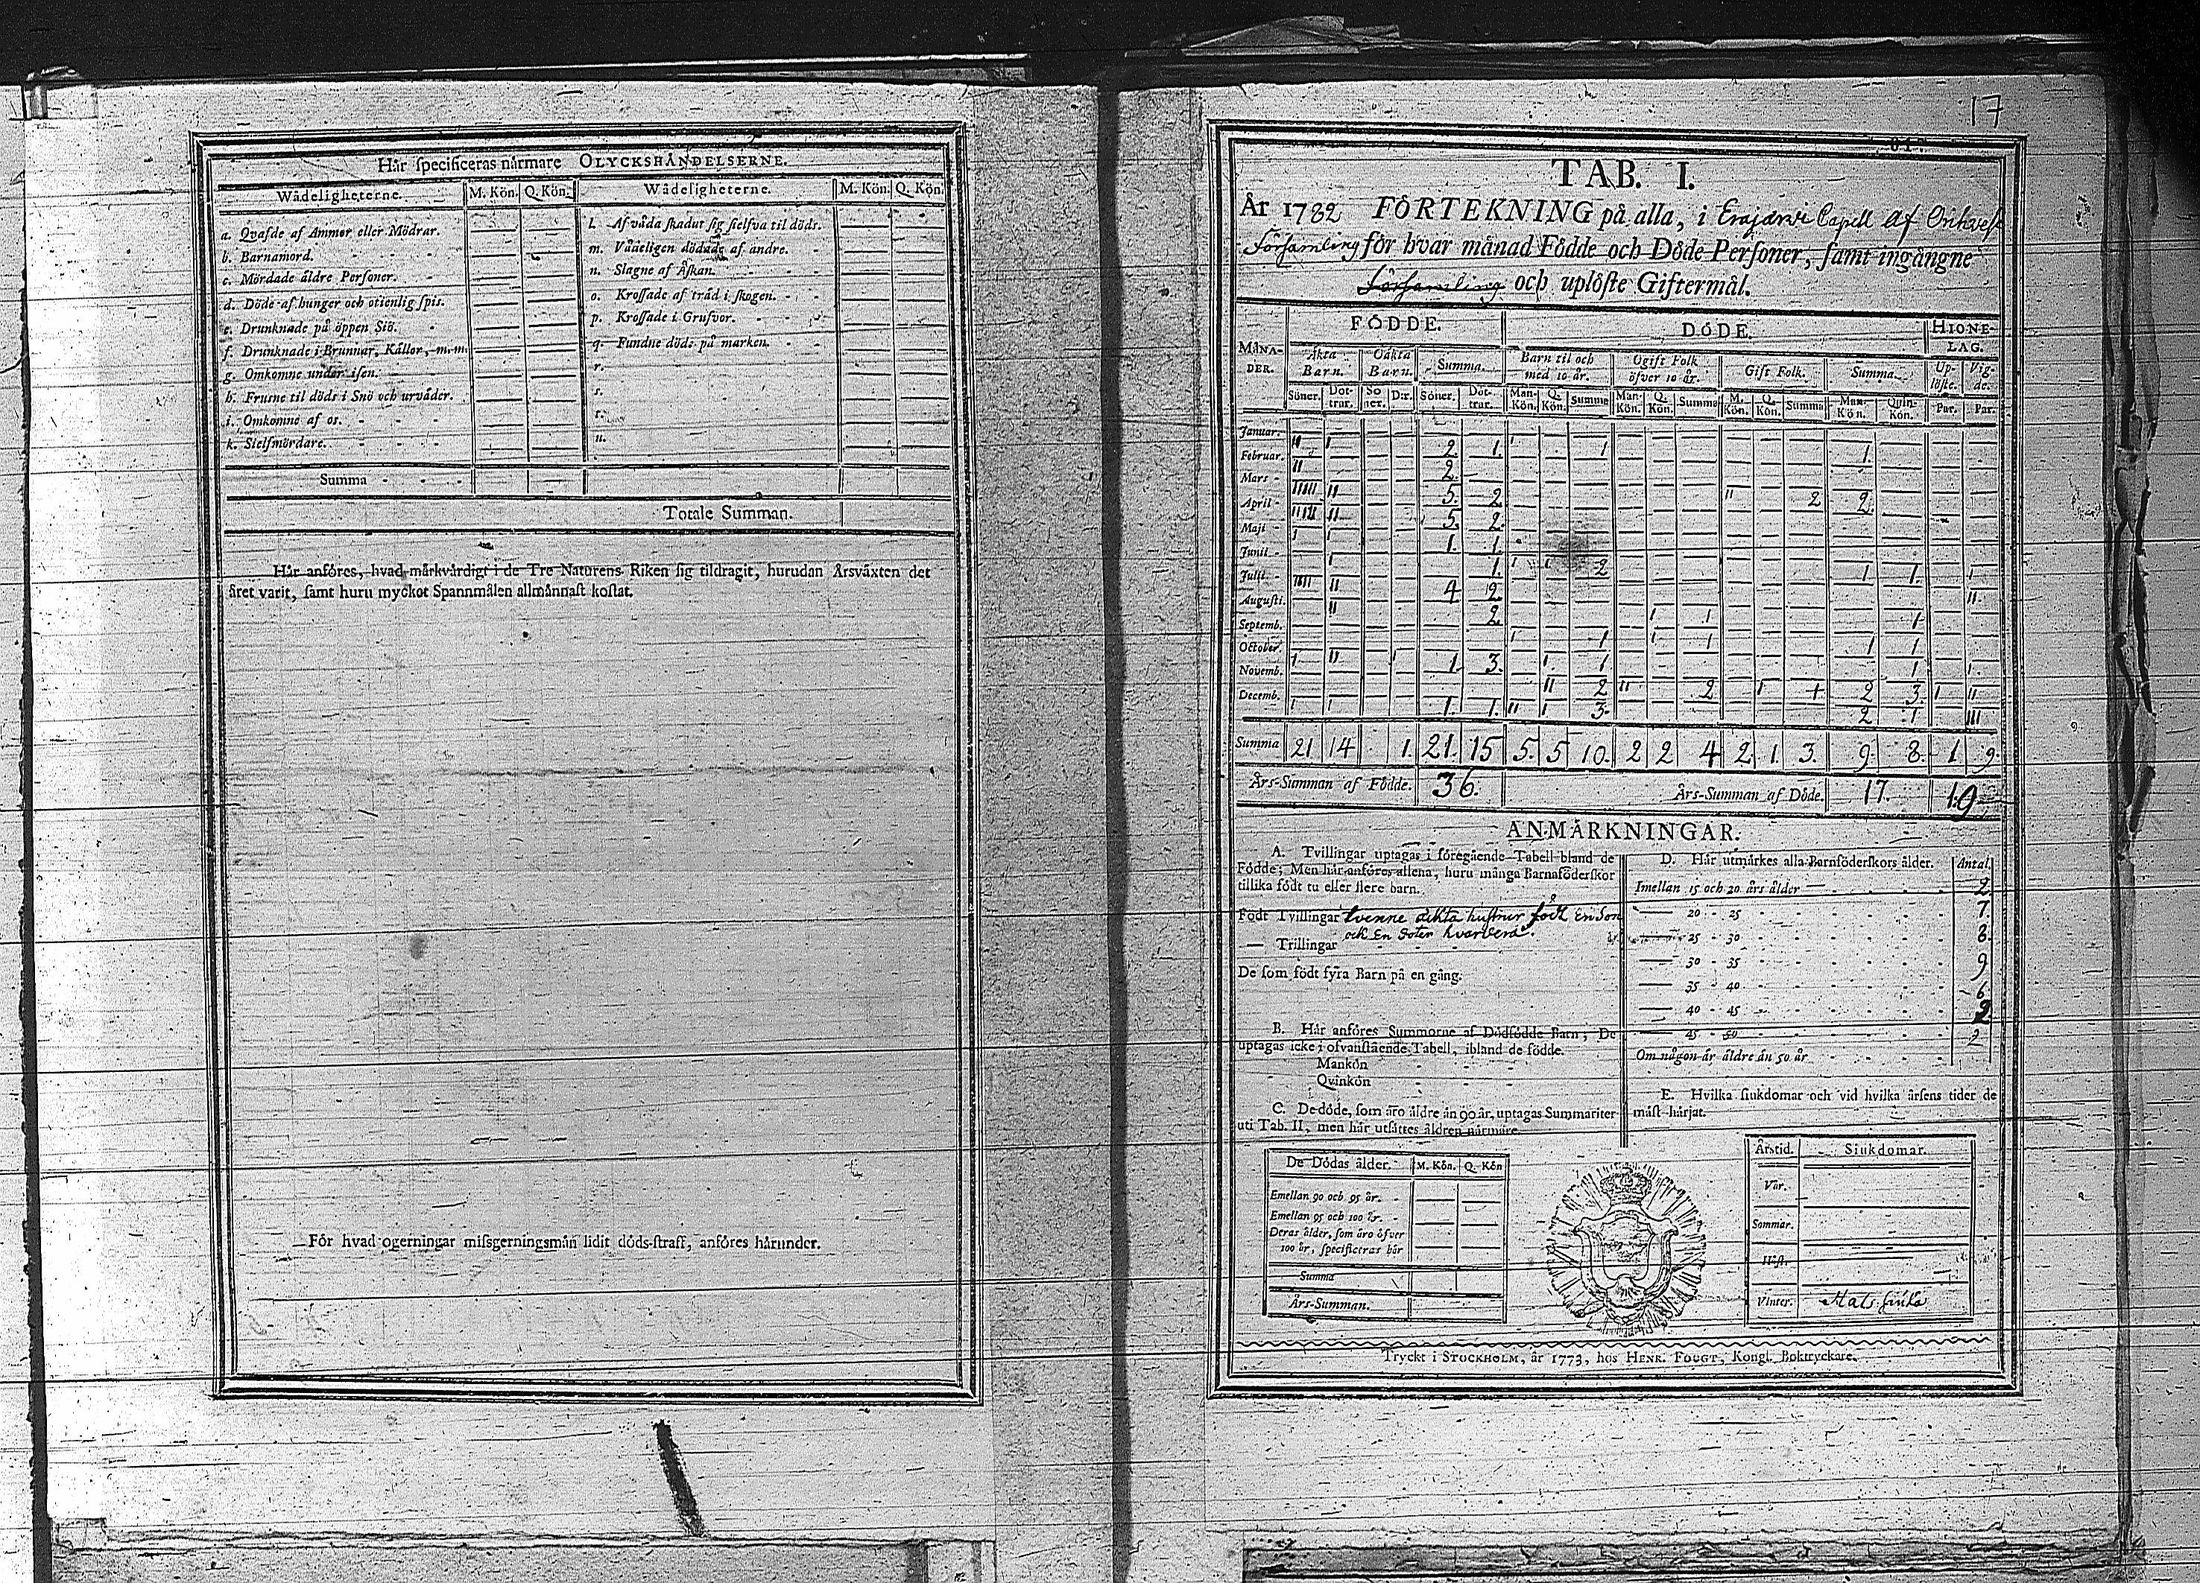 Här specificeras närmare OLYCKSHÄNDELSERNE.
Wådeligheterne. M. Kön. Q. Kön. Wådeligheterne. M. Kön. Q. Kön.
a. Qvafde af Ammor eller Mödrar.
b. Barnamord.
c. Mördade äldre Personer.
d. Döde af hunger och otienlig spis.
e. Drunknade på öppen Siö.
f. Drunknade i Brunnar, Källor, m.m.
g. Omkomne under isen.
h. Frusne til döds i Snö och urväder.
i. Omkomne af os.
k. Sielfmördare.
l. Af våda skadat sig sielfva til döds.
m. Vådeligen dödade af andre.
n. Slagne af Åskan.
o. Krossade af träd i skogen.
p. Krossade i Grufvor.
q. Fundne döde på marken.
r.
s.
t.
u.
Summa
Totale Summan.
Här anföres, hvad märkvärdigt i de Tre Naturens Riken sig tildragit, hurudan Årsväxten det
året varit, samt huru mycket Spannmålen allmännast kostat.
För hvad ogerningar missgerningsmän lidit döds-straff, anföres härunder.
17
TAB. I.
År 1782 FÖRTEKNING på alla, i Erajärvi Capell af Orihvesi
Församling för hvar månad Födde och Döde Personer, samt ingångne
Församling och uplöste Giftermål.
MÅNADER. FÖDDE. DÖDE. HIONELAG.
Äkta Barn. Oäkta Barn. Summa. Barn til och med 10 år. Ogift Folk öfver 10 år. Gift Folk. Summa. Uplöste. Vigde.
Söner. Dottrar. Söner. Dr. Söner. Dottrar. Man-Kön. Q. Kön. Summa Man-Kön. Q. Kön. Summa M. Kön. Q. Kön. Summa Man-Kön. Quin-Kön. Par. Par.
Januar. II I 2. 1. I 1 1.
Februar. II 2.
Mars IIIII II 5. 2 II 2 2.
April IIIII II 5. 2.
Maji I I 1. 1.
Junii I 1. I I 2 1 1. I
Julii IIII II 4 2. II.
Augusti. II 2. I 1 1.
Septemb. I 1 I 1 1 1
October. I II I 1. 3. I 1. 1 I.
Novemb. II 2 II 2 I 1 2 3. I II
Decemb. I I 1. 1. II I 3. 2 1 III
Summa 21 14 1. 21. 15 5. 5 10. 2 2 4 2. 1. 3. 9. 8. 1. 9.
Års-Summan af Födde. 36. Års-Summan af Döde. 17.
ANMÄRKNINGAR.
A. Tvillingar uptagas i föregående Tabell bland de
Födde; Men här anföres allena, huru många Barnaföderskor
tillika födt tu eller flere barn.
Födt Tvillingar tvenne äkta hustrur födt en Son
och en Doter hvardera.
— Trillingar
De som födt fyra Barn på en gång.
B. Här anföres Summorne af Dödfödde Barn; De
uptagas icke i ofvanstående Tabell, ibland de födde.
Mankön
Qvinkön
C. De döde, som äro äldre än 90 år, uptagas Summariter
uti Tab. II, men här utsättes åldren närmare.
De Dödas ålder. M. Kön. Q. Kön
Emellan 90 och 95 år.
Emellan 95 och 100 år.
Deras ålder, som äro öfver
100 år, specificeras här
Summa
Års-Summan.
D. Här utmärkes alla Barnföderskors ålder. Antal
Imellan 15 och 20 års ålder 2.
20 - 25 7.
25 - 30 8.
30 - 35 9
35 - 40 6
40 - 45 2.
45 - 50 2
Om någon är äldre än 50 år
E. Hvilka siukdomar och vid hvilka årsens tider de
mäst härjat.
Årstid. Siukdomar.
Vår.
Sommar.
Höst.
Vinter.
Tryckt i STOCKHOLM, år 1773, hos HENR. FOUGT, Kongl. Boktryckare.